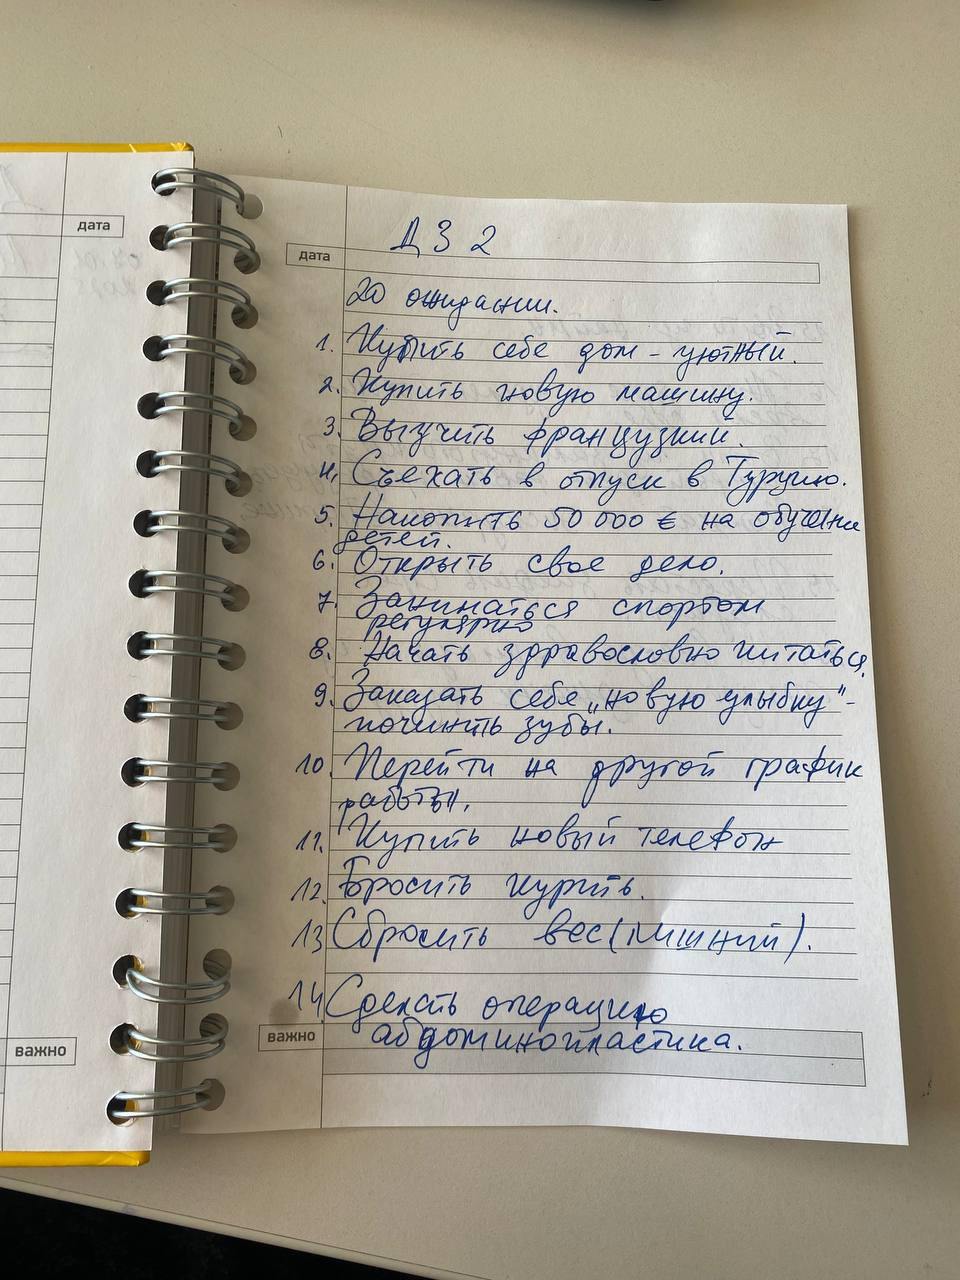 дата
ДЗ 2
дата
20 ожидании.
1. Купить себе дом - уютный.
2. Купить новую машину.
3. Выучить французкий.
4. Съехать в отпуск в Турцию.
5. Накопить 50 000 € на обучение
детей.
6. Открыть свое дело.
7. Заниматься спортом
регулярно
8. Начать здравословно питаться.
9. Заказать себе „новую улыбку" -
починить зубы.
10. Перейти на другой график
работы.
11. Купить новый телефон
12. Бросить курить.
13 Сбросить вес (лишний).
14 Сделать операцию
важно
абдоминопластика.
важно